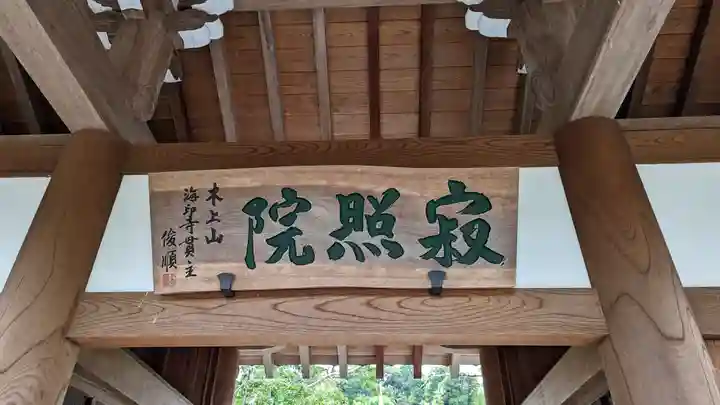 寂照院
木上山
海印寺貫主
俊順